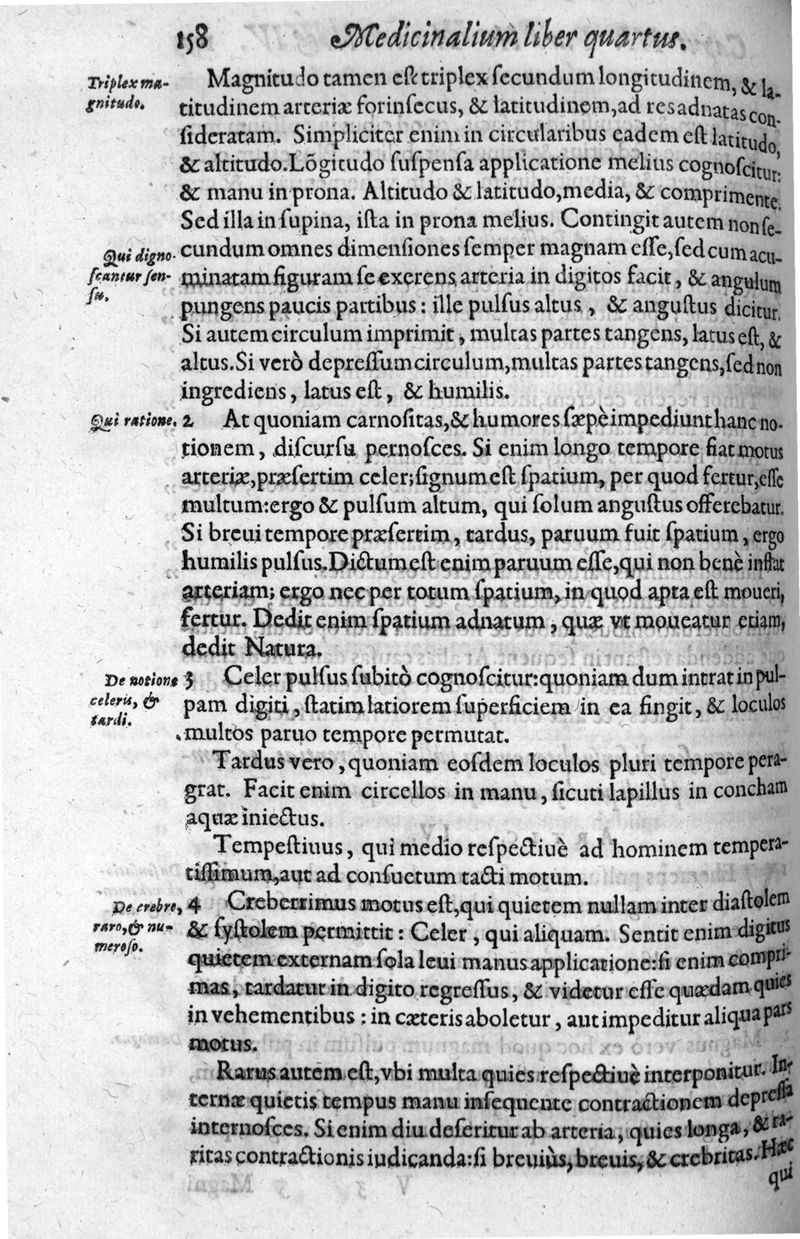 158 Medicinalium liber quartus.
Triplex ma-
gnitudo.
Magnitudo tamen est triplex secundum longitudinem, & la-
titudinem arteriæ forinsecus, & latitudinem, ad res adnatas con-
sideratam. Simpliciter enim in circularibus eadem est latitudo,
& altitudo. Lõgitudo suspensa applicatione melius cognoscitur:
& manu in prona. Altitudo & latitudo, media, & comprimente.
Sed illa in supina, ista in prona melius. Contingit autem non se-
Qui digno-
scantur sen-
su.
cundum omnes dimensiones semper magnam esse, sed cum acu-
minatam figuram se exerens arteria in digitos facit, & angulum
pungens paucis partibus: ille pulsus altus, & angustus dicitur.
Si autem circulum imprimit, multas partes tangens, latus est, &
altus. Si verò depressum circulum, multas partes tangens, sed non
ingrediens, latus est, & humilis.
Qui ratione.
2 At quoniam carnositas, & humores sæpè impediunt hanc no-
tionem, discursu pernosces. Si enim longo tempore fiat motus
arteriæ, præsertim celer; signum est spatium, per quod fertur, esse
multum: ergo & pulsum altum, qui solum angustus offerebatur.
Si breui tempore præsertim, tardus, paruum fuit spatium, ergo
humilis pulsus. Dictum est enim paruum esse, qui non benè inflat
arteriam; ergo nec per totum spatium, in quod apta est moueri,
fertur. Dedit enim spatium adnatum, quæ vt moueatur etiam,
dedit Natura.
De notione
celeris, &
tardi.
3 Celer pulsus subitò cognoscitur: quoniam dum intrat in pul-
pam digiti, statim latiorem superficiem in ea fingit, & loculos
multos paruo tempore permutat.
Tardus vero, quoniam eosdem loculos pluri tempore pera-
grat. Facit enim circellos in manu, sicuti lapillus in concham
aquæ iniectus.
Tempestiuus, qui medio respectiuè ad hominem tempera-
tissimum, aut ad consuetum tacti motum.
De crebro,
raro, & nu-
meroso.
4 Creberrimus motus est, qui quietem nullam inter diastolem
& systolem permittit: Celer, qui aliquam. Sentit enim digitus
quietem externam sola leui manus applicatione: si enim compri-
mas, tardatur in digito regressus, & videtur esse quædam quies
in vehementibus: in cæteris aboletur, aut impeditur aliqua pars
motus.
Rarus autem est, vbi multa quies respectiuè interponitur. In-
ternæ quietis tempus manu insequente contractionem depressa
internosces. Si enim diu deseritur ab arteria, quies longa, & ra-
ritas contractionis iudicanda: si breuiùs, breuis, & crebritas. Hæc
qui